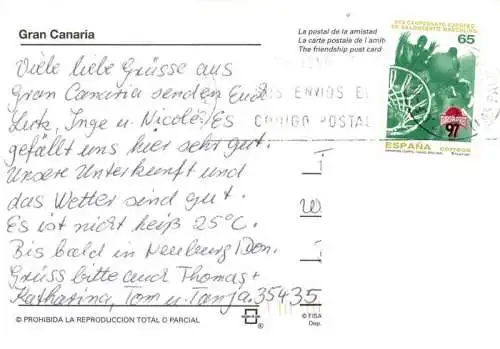 Gran Canaria
Viele liebe Grüsse aus
Gran Canaria senden Euch
Lutz, Inge u. Nicole! Es
gefällt uns hier sehr gut.
Unsere Unterkunft und
das Wetter sind gut.
Es ist nicht heiß 25°C.
Bis bald in Neuburg/Don.
Grüss bitte auch Thomas +
Katharina, Tom u. Tanja. 35435
© PROHIBIDA LA REPRODUCCION TOTAL O PARCIAL
La postal de la amistad
La carte postale de l'amiti
The friendship post card
ENVIOS
CODIGO POSTAL
XXX CAMPEONATO EUROPEO
DE BALONCESTO MASCULINO
65
97
ESPAÑA
CORREOS
W
© FISA
Dep.